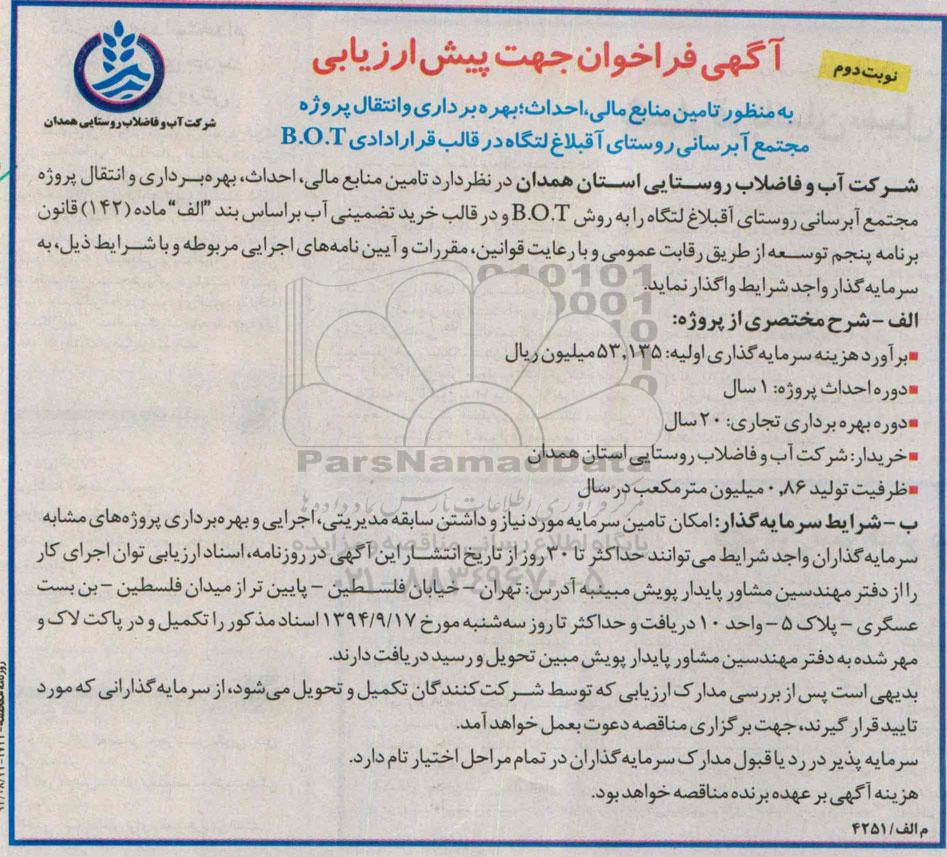 آگهی فراخوان جهت پیش ارزیابی
نوبت دوم
شرکت آب و فاضلاب روستایی همدان
به منظور تامین منابع مالی، احداث؛ بهره برداری وانتقال پروژه
مجتمع آبرسانی روستای آقبلاغ لتگاه در قالب قراردادی B.O.T
شرکت آب و فاضلاب روستایی استان همدان در نظر دارد تامین منابع مالی، احداث، بهره‌برداری و انتقال پروژه
مجتمع آبرسانی روستای آقبلاغ لتگاه را به روش B.O.T و در قالب خرید تضمینی آب براساس بند "الف" ماده (۱۴۲) قانون
برنامه پنجم توسعه از طریق رقابت عمومی و با رعایت قوانین، مقررات و آیین نامه‌های اجرایی مربوطه و با شرایط ذیل، به
سرمایه گذار واجد شرایط واگذار نماید.
الف - شرح مختصری از پروژه:
برآورد هزینه سرمایه گذاری اولیه: ۵۳,۱۳۵ میلیون ریال
دوره احداث پروژه: ۱ سال
دوره بهره برداری تجاری: ۲۰ سال
خریدار: شرکت آب و فاضلاب روستایی استان همدان
ظرفیت تولید ۰,۸۶ میلیون مترمکعب در سال
ب - شرایط سرمایه گذار: امکان تامین سرمایه مورد نیاز و داشتن سابقه مدیریتی، اجرایی و بهره برداری پروژه‌های مشابه
سرمایه گذاران واجد شرایط می توانند حداکثر تا ۳۰ روز از تاریخ انتشار این آگهی در روزنامه، اسناد ارزیابی توان اجرای کار
را از دفتر مهندسین مشاور پایدار پویش مبین به آدرس: تهران - خیابان فلسطین - پایین تر از میدان فلسطین - بن بست
عسگری - پلاک ۵ - واحد ۱۰ دریافت و حداکثر تا روز سه شنبه مورخ ۱۳۹۴/۹/۱۷ اسناد مذکور را تکمیل و در پاکت لاک و
مهر شده به دفتر مهندسین مشاور پایدار پویش مبین تحویل و رسید دریافت دارند.
بدیهی است پس از بررسی مدارک ارزیابی که توسط شرکت کنندگان تکمیل و تحویل می شود، از سرمایه گذارانی که مورد
تایید قرار گیرند، جهت برگزاری مناقصه دعوت بعمل خواهد آمد.
سرمایه پذیر در رد یا قبول مدارک سرمایه گذاران در تمام مراحل اختیار تام دارد.
هزینه آگهی بر عهده برنده مناقصه خواهد بود.
م الف/۴۲۵۱
ParsNamadData
مرکز فرآوری اطلاعات پارس نماد داده ها
پایگاه اطلاع رسانی مناقصه و مزایده
۰۲۱-۸۸۳۴۹۶۷۰-۵